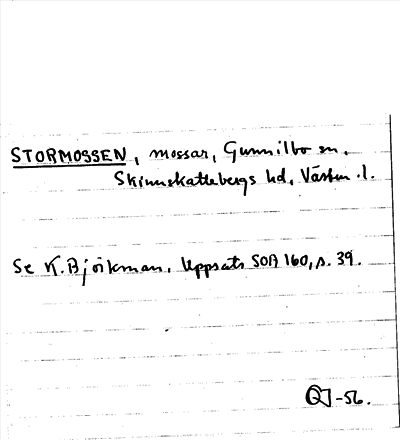 STORMOSSEN, mossar, Gunnilbo sn,
Skinnskattebergs hd, Västm. l.
Se K. Björkman, Uppsats SOA 160, s. 39.
-56.